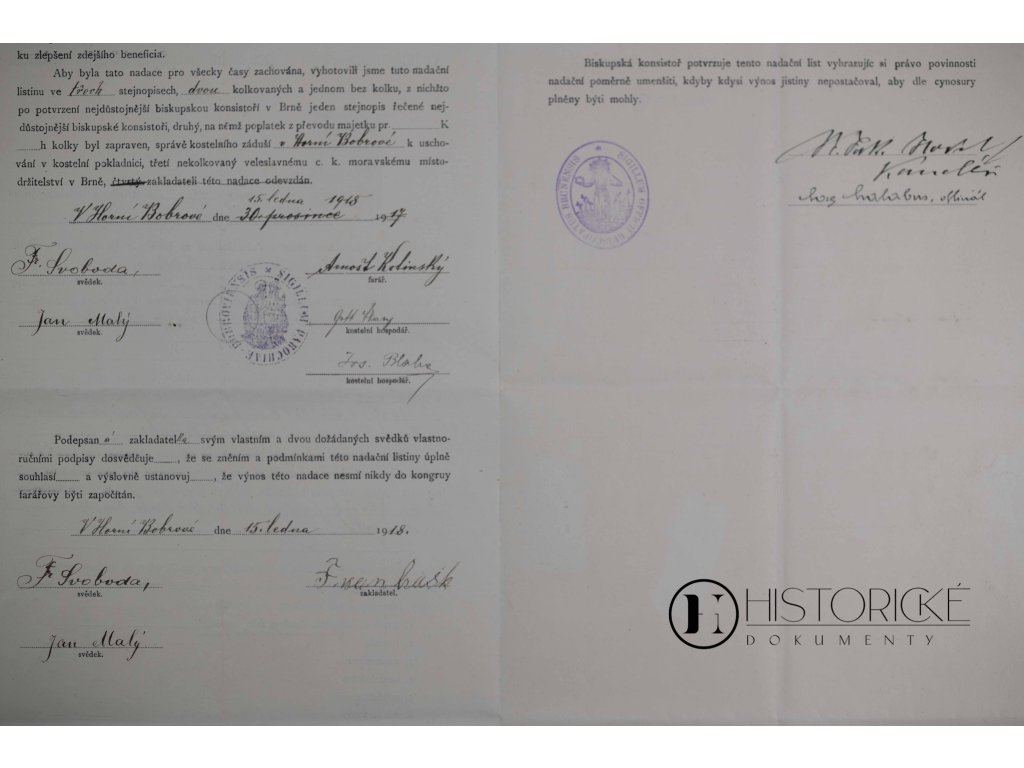 ku zlepšení zdejšího beneficia.
Aby byla tato nadace pro všecky časy zachována, vyhotovili jsme tuto nadační
listinu ve třech stejnopisech, dvou kolkovaných a jednom bez kolku, z nichžto
po potvrzení nejdůstojnější biskupskou konsistoří v Brně jeden stejnopis řečené nej-
důstojnější biskupské konsistoři, druhý, na němž poplatek z převodu majetku pr. K
h kolky byl zapraven, správě kostelního záduší v Horní Bobrové k uscho-
vání v kostelní pokladnici, třetí nekolkovaný veleslavnému c. k. moravskému místo-
držitelství v Brně, čtvrtý zakladateli této nadace odevzdán.
15. ledna 1918
V Horní Bobrové dne 30. prosince 1917
Fr. Svoboda,
svědek.
Arnošt Kotinský
farář.
Jan Malý
svědek.
kostelní hospodář.
Jos. Blaha
kostelní hospodář.
SIGILLUM PAROCHIAE BOBROVIENSIS
Podepsaný zakladatel svým vlastním a dvou dožádaných svědků vlastno-
ručními podpisy dosvědčuje, že se zněním a podmínkami této nadační listiny úplně
souhlasí a výslovně ustanovuj, že výnos této nadace nesmí nikdy do kongruy
farářovy býti započítán.
V Horní Bobrové dne 15. ledna 1918.
Fr Svoboda,
svědek.
zakladatel.
Jan Malý
svědek.
Biskupská konsistoř potvrzuje tento nadační list vyhrazujíc si právo povinnosti
nadační poměrně umenšiti, kdyby kdysi výnos jistiny nepostačoval, aby dle cynosury
plněny býti mohly.
Kancléř
HISTORICKÉ
DOKUMENTY